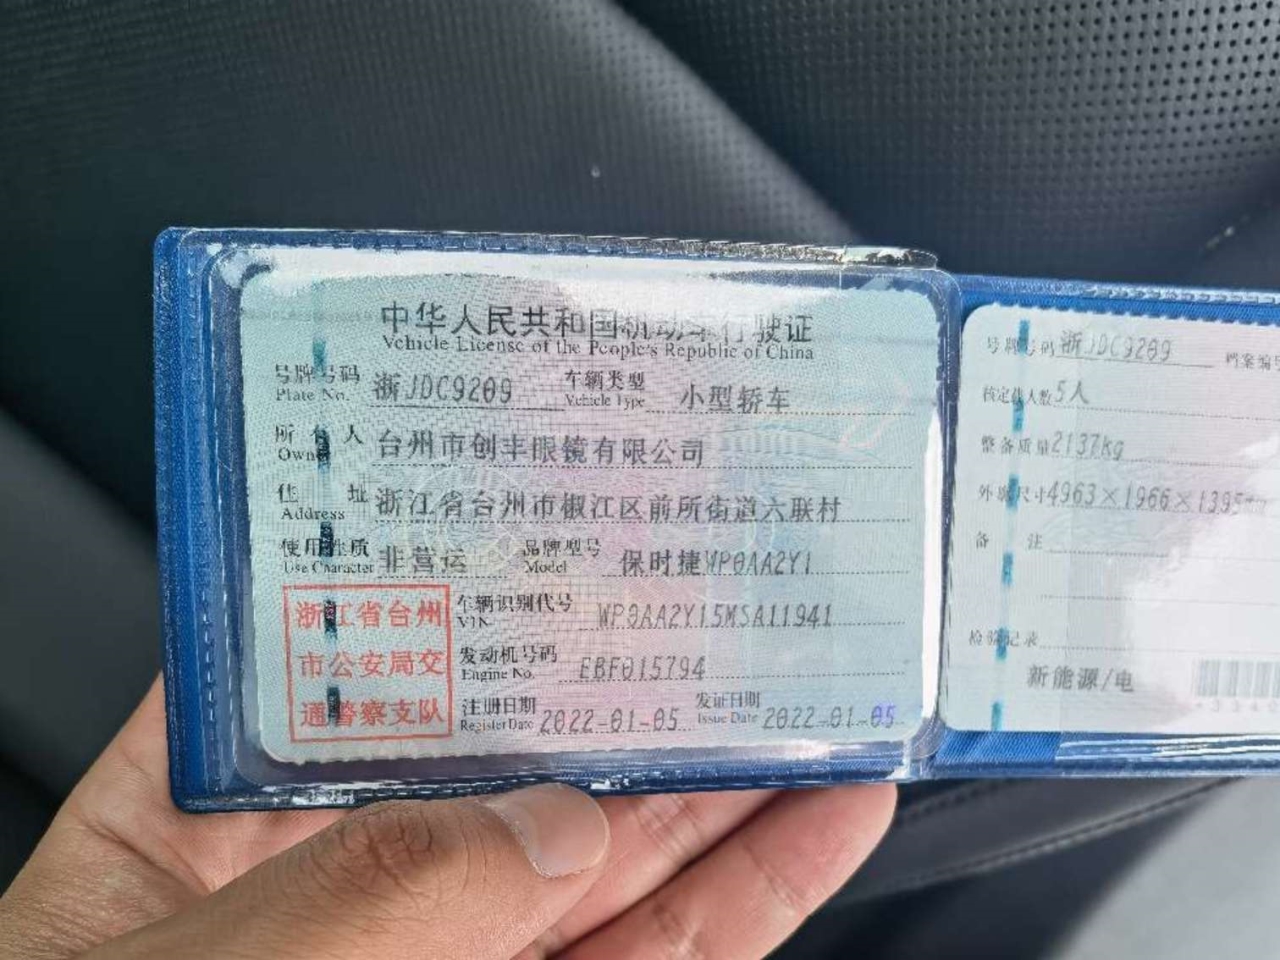 中华人民共和国机动车行驶证
Vehicle License of the People's Republic of China
号牌号码 浙JDC9209 车辆类型 小型轿车
Plate No. Vehicle Type
所有人 台州市创丰眼镜有限公司
Owner
住址 浙江省台州市椒江区前所街道六联村
Address
使用性质 非营运 品牌型号 保时捷WP0AA2Y1
Use Character Model
浙江省台州
市公安局交
通警察支队
车辆识别代号 WP0AA2Y15MSA11941
VIN
发动机号码 EBF015794
Engine No.
注册日期 2022-01-05 发证日期 2022-01-05
Register Date Issue Date
号牌号码 浙JDC9209 档案编号
核定载人数 5人
整备质量 2137kg
外廓尺寸 4963×1966×1395mm
备注
检验记录
新能源/电